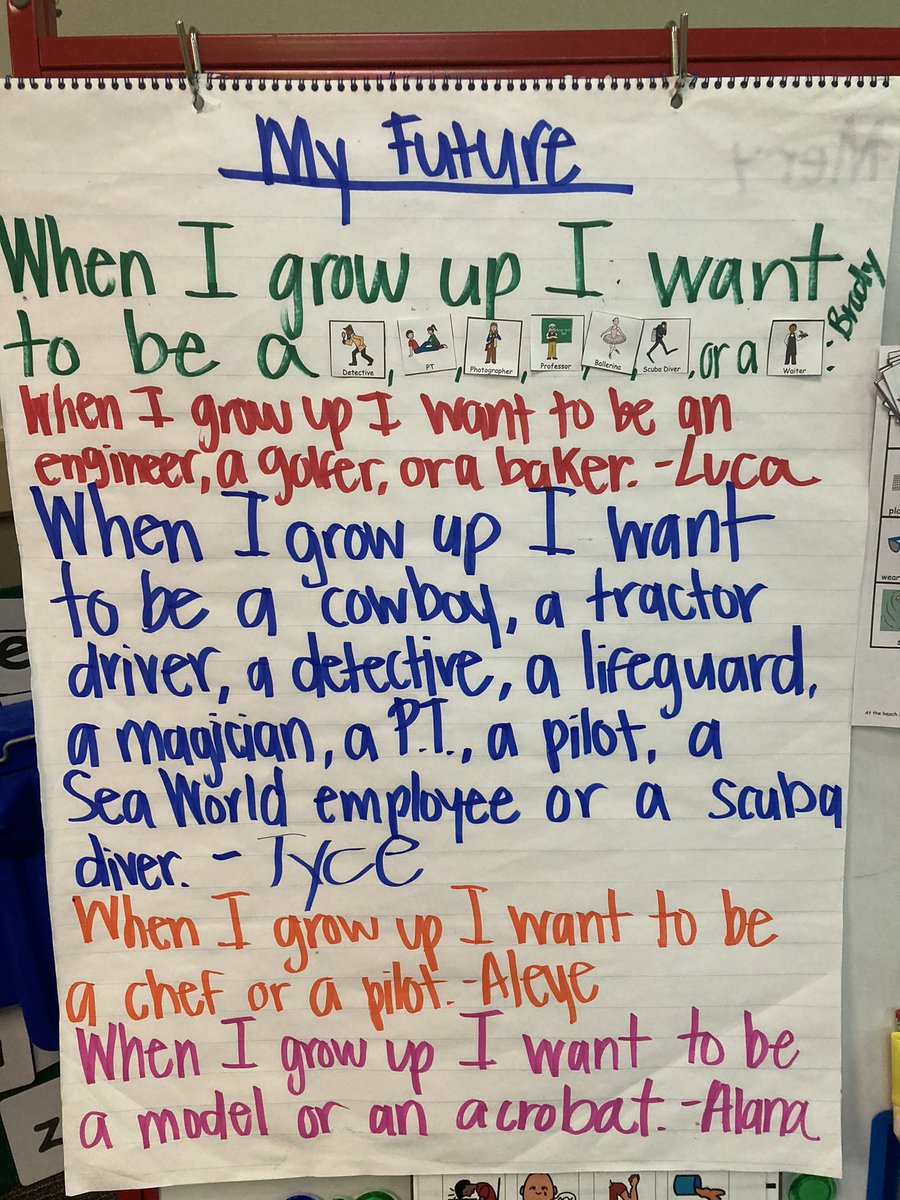 My Future
When I grow up I want
to be a Detective, PT, Photographer, Professor, Ballerina, Scuba Diver, or a Waiter. -Brody
When I grow up I want to be an
engineer, a golfer, or a baker. -Luca
When I grow up I want
to be a cowboy, a tractor
driver, a detective, a lifeguard,
a magician, a P.T., a pilot, a
Sea World employee or a scuba
diver. - Tyce
When I grow up I want to be
a chef or a pilot. -Aleye
When I grow up I want to be
a model or an acrobat. -Alana
At the beach